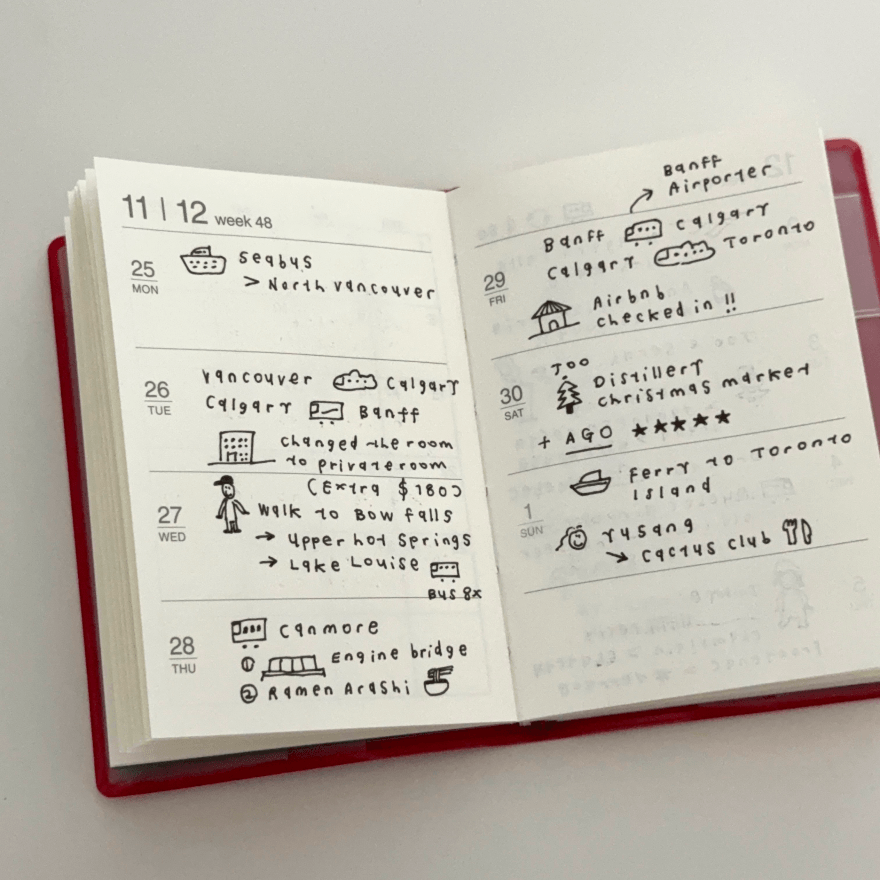 11 | 12 week 48
25
MON
seabus
> North vancouver
26
TUE
vancouver Calgary
Calgary Banff
changed the room
to private room
(Extra $180)
27
WED
walk to Bow falls
→ upper hot springs
→ Lake Louise
BUS 8x
28
THU
canmore
① Engine bridge
② Ramen Arashi
Banff
Airporter
29
FRI
Banff calgary
calgary Toronto
Airbnb
checked in !!
30
SAT
Distillery
christmas market
+ AGO ★★★★★
1
SUN
Ferry to Toronto
Island
yusang
→ cactus club